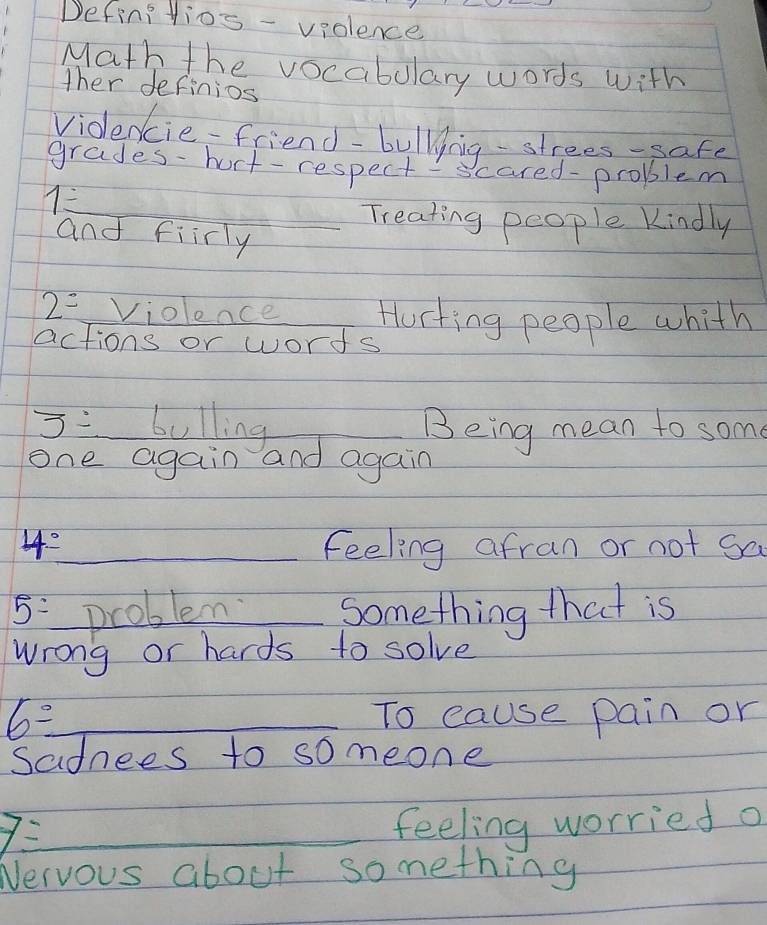 Definitios - violence
Math the vocabulary words with
ther definios
Violenkie - friend - bullynig - strees - safe
grades - hurt - respect - scared - problem
1= ________ Treating people kindly
and fiirly
2= Violence Hurting people whith
actions or words
3= bulling Being mean to some
one again and again
4= ________ Feeling afran or not Sa
5= problem Something that is
wrong or hards to solve
6= ________ To cause pain or
Sadnees to someone
7= ________ feeling worried o
Nervous about something